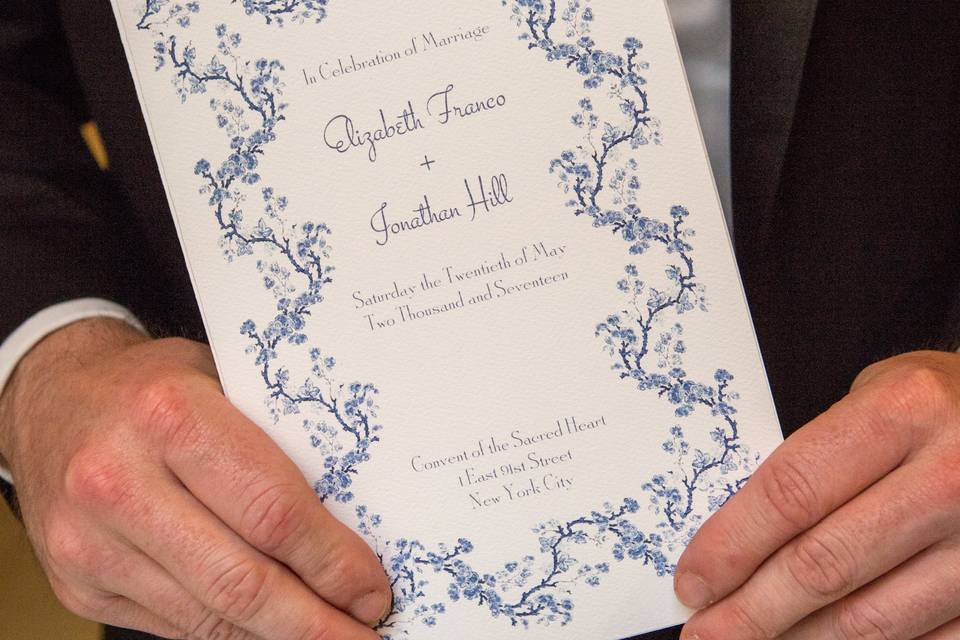 In Celebration of Marriage
Elizabeth Franco
+
Jonathan Hill
Saturday the Twentieth of May
Two Thousand and Seventeen
Convent of the Sacred Heart
1 East 91st Street
New York City